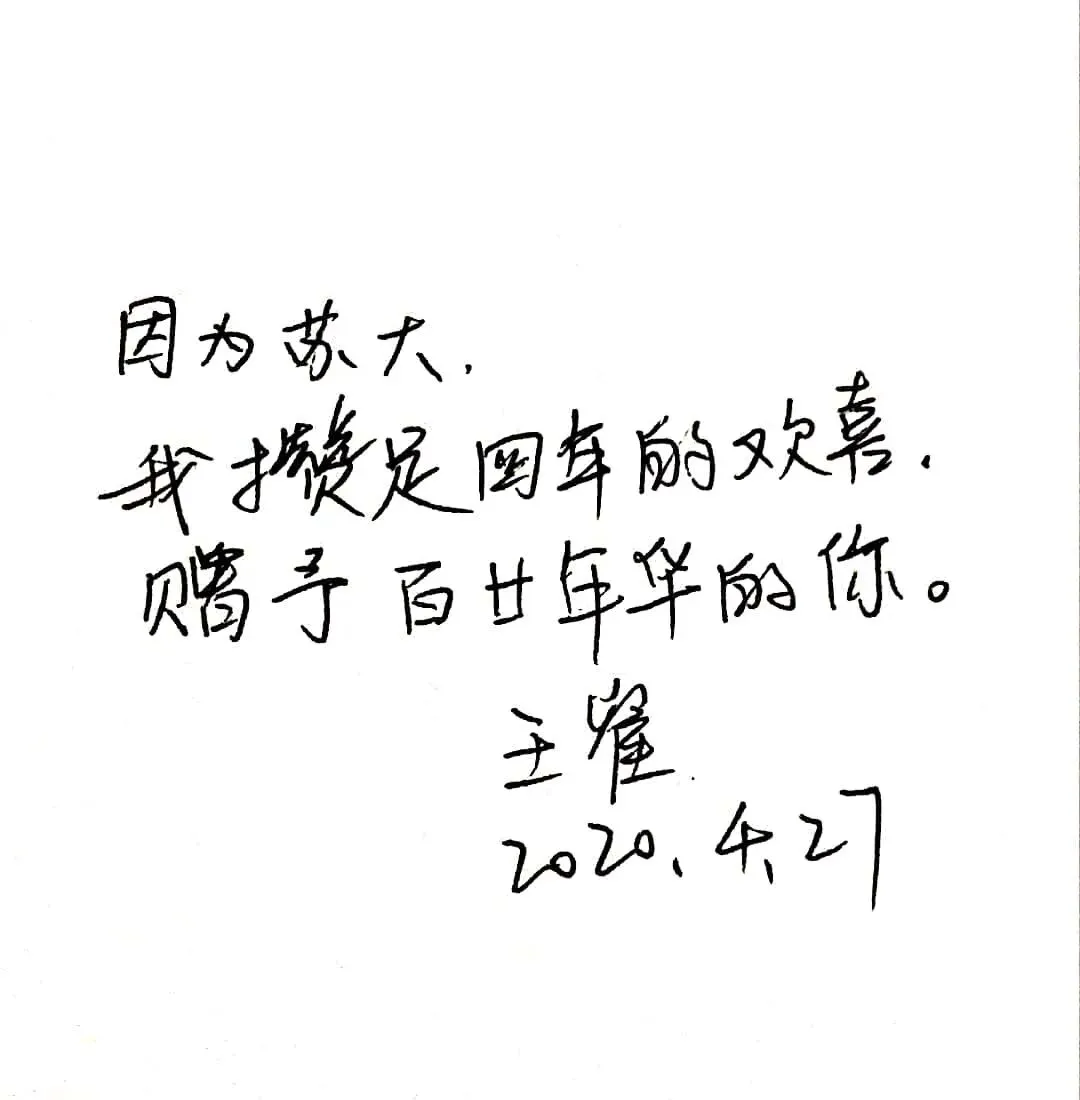 因为苏大,
我攒足四年的欢喜,
赠予百廿年华的你。
王
2020.4.27